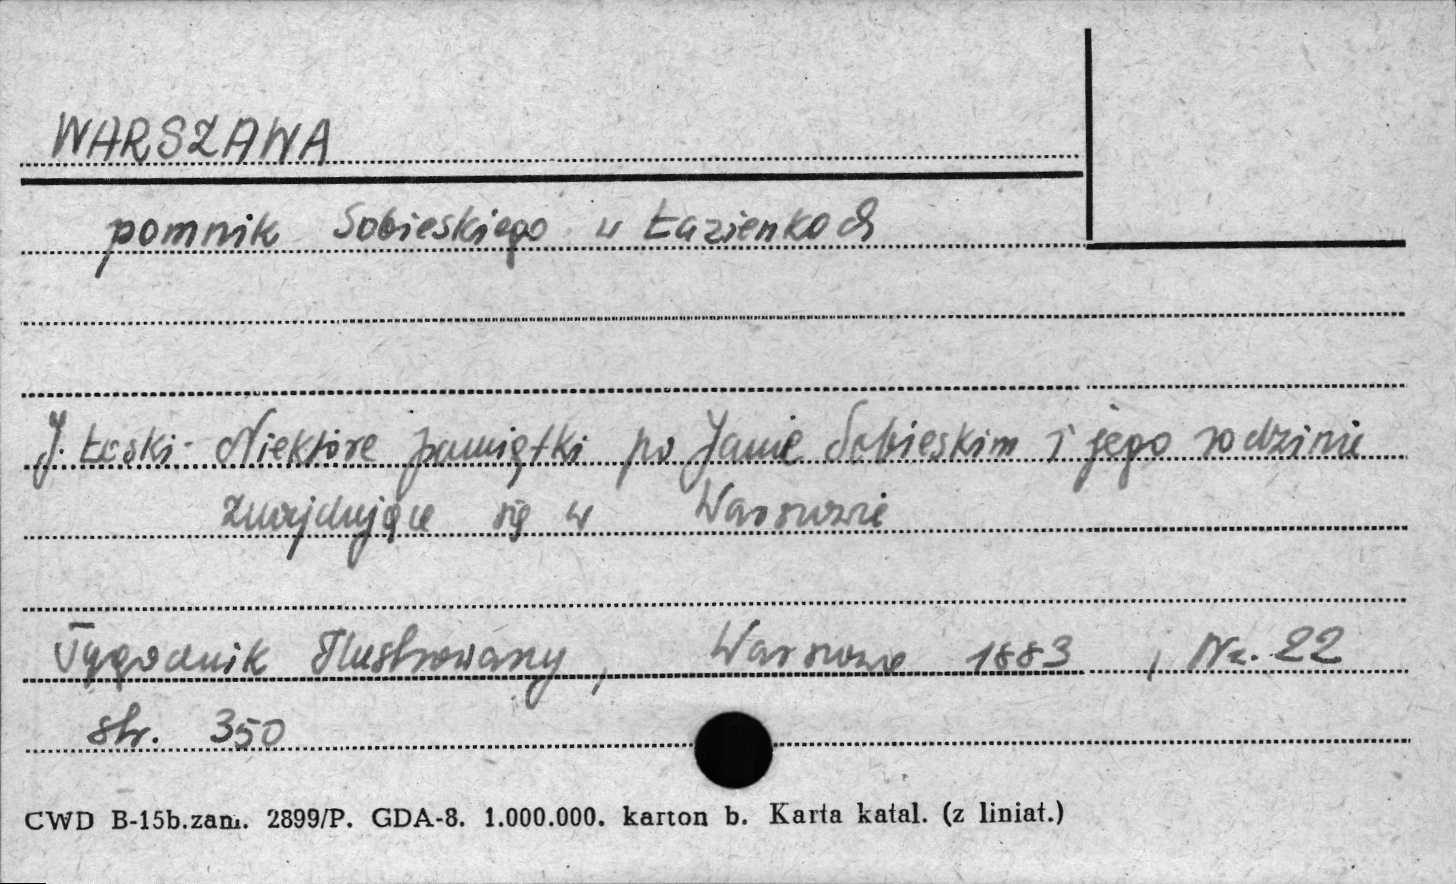 WARSZAWA
pomnik Sobieskiego w Łazienkach
J. Łoski - Niektóre pamiątki po Janie Sobieskim i jego rodzinie
znajdujące się w Warszawie
Tygodnik Ilustrowany, Warszawa 1883, Nr. 22
str. 350
CWD B-15b.zam. 2899/P. GDA-8. 1.000.000. karton b. Karta katal. (z liniat.)